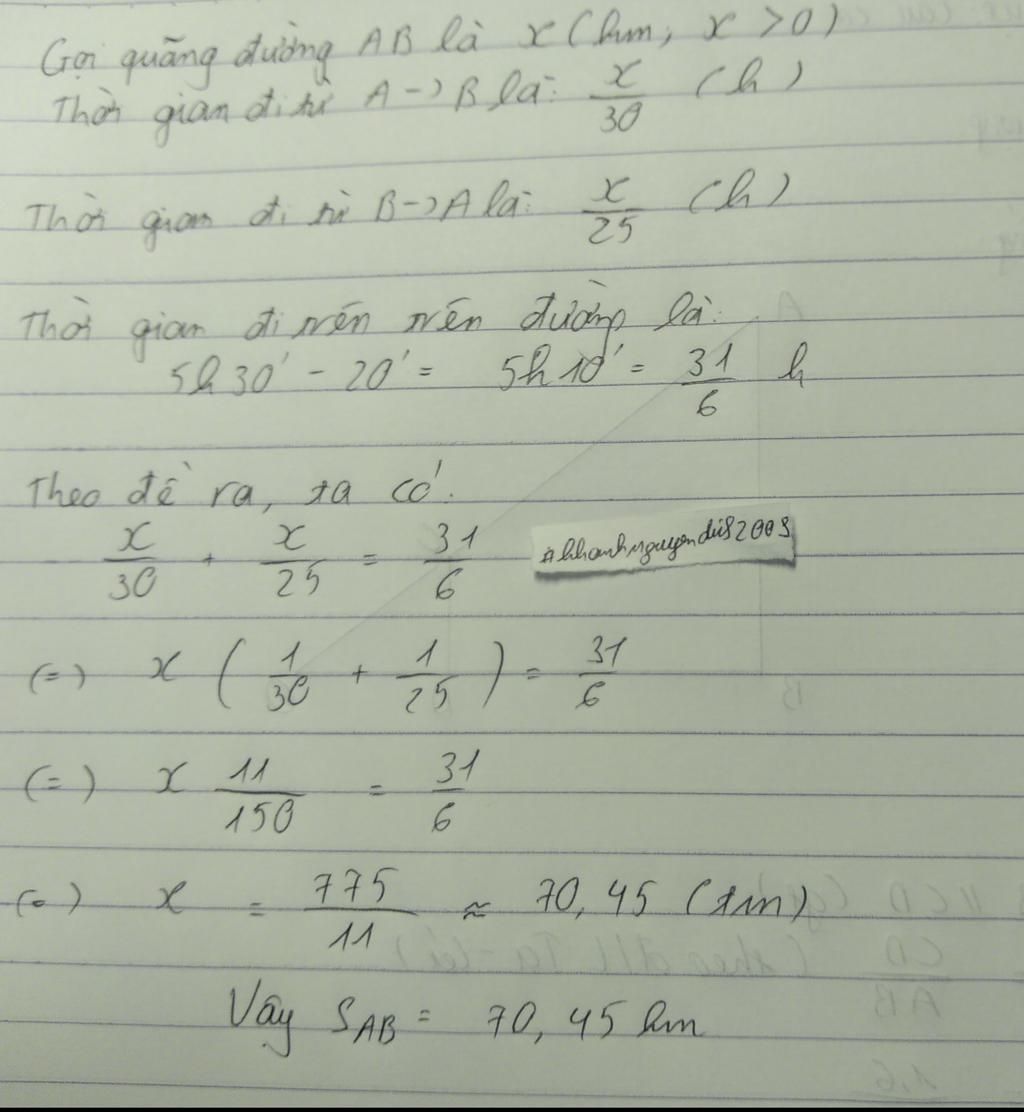 Gọi quãng đường AB là x (km; x > 0)
Thời gian đi từ A -> B là: x/30 (h)
Thời gian đi từ B -> A là: x/25 (h)
Thời gian đi trên trên đường là:
5h30' - 20' = 5h10' = 31/6 h
Theo đề ra, ta có:
x/30 + x/25 = 31/6
#khanhnguyenduS2003
(=) x (1/30 + 1/25) = 31/6
(=) x 11/150 = 31/6
(=) x = 775/11 ≈ 70,45 (km)
Vậy SAB = 70,45 km